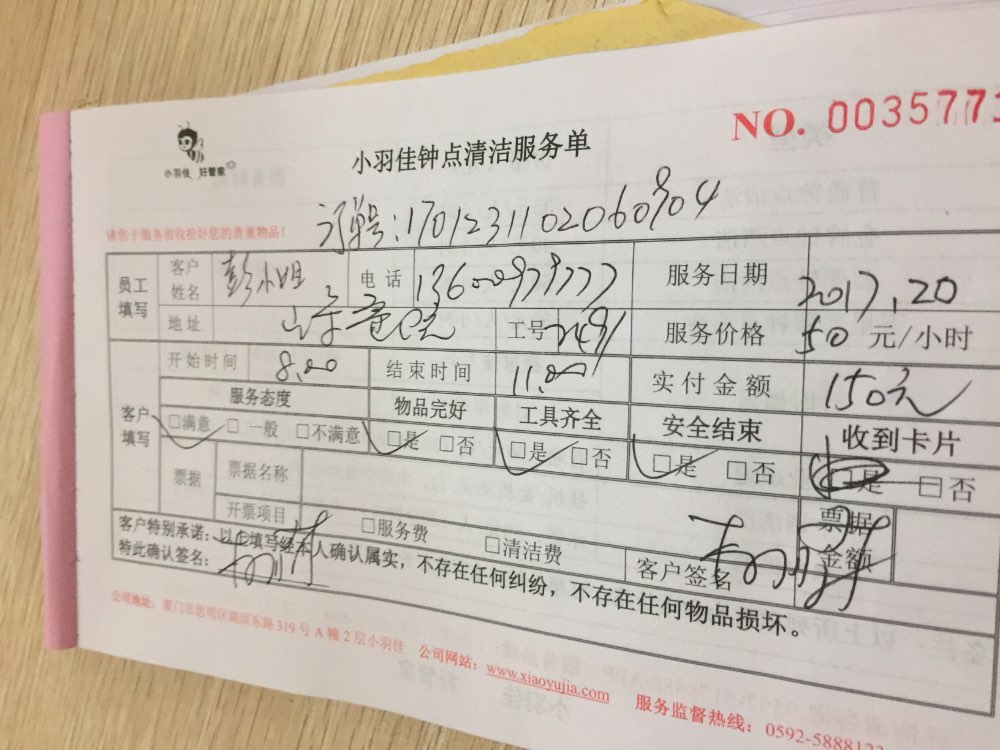 NO. 003577
小羽佳 好管家
小羽佳钟点清洁服务单
订单号:1701231102060904
请您于服务前收拾好您的贵重物品!
员工填写 客户姓名 彭小姐 电话 服务日期 2017,20
地址 工号 2491 服务价格 50 元/小时
开始时间 8.00 结束时间 11.00 实付金额 150元
客户填写 服务态度 物品完好 工具齐全 安全结束 收到卡片
□满意 □一般 □不满意 □是 □否 □是 □否 □是 □否 □是 □否
票据 票据名称 票据金额
开票项目 □服务费 □清洁费 客户签名
客户特别承诺:以上填写经本人确认属实,不存在任何纠纷,不存在任何物品损坏。
特此确认签名:
公司地址:厦门市思明区湖滨东路319号A幢2层小羽佳 公司网站:www.xiaoyujia.com 服务监督热线:0592-588812